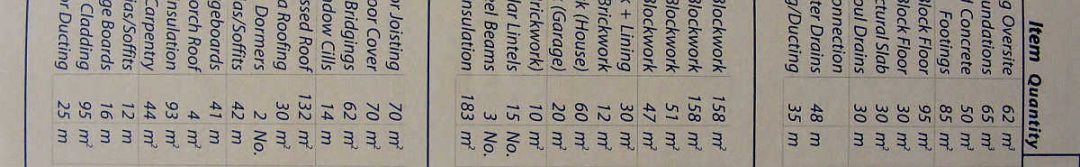 Item Quantity
g Oversite 62 m²
undations 65 m²
l Concrete 50 m²
Footings 85 m²
lock Floor 95 m²
Block Floor 30 m²
ctural Slab 30 m²
oul Drains 30 m
onnection
ter Drains 48 m
g/Ducting 35 m
Blockwork 158 m²
Blockwork 158 m²
Blockwork 51 m²
Blockwork 47 m²
k + Lining 30 m²
Brickwork 12 m²
k (House) 60 m²
(Garage) 20 m²
rickwork) 10 m²
lar Lintels 15 No.
el Beams 3 No.
nsulation 183 m²
or Joisting 70 m²
oor Cover 70 m²
Bridgings 62 m²
dow Cills 14 m
ssed Roof 132 m²
a Roofing 30 m²
Dormers 2 No.
ias/Soffits 42 m
geboards 41 m
orch Roof 4 m²
nsulation 93 m²
Carpentry 44 m²
ias/Soffits 12 m
ge Boards 16 m
Cladding 95 m²
r Ducting 25 m